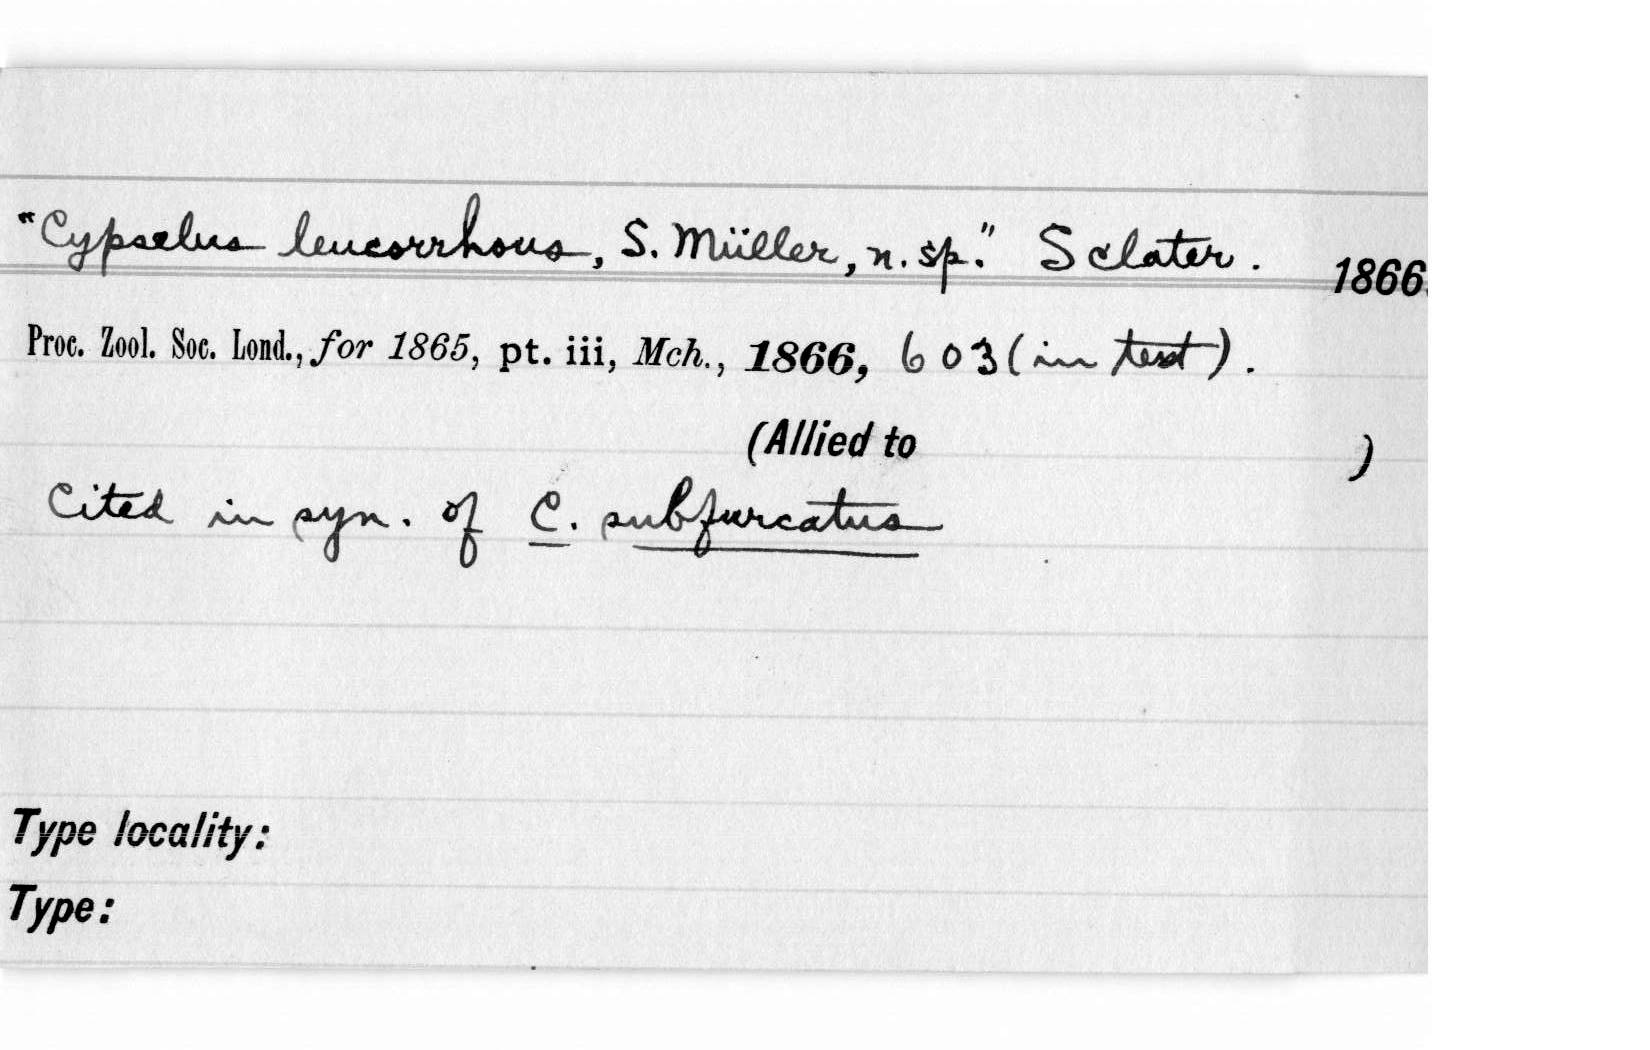 "Cypselus leucorrhous, S. Müller, n. sp." Sclater. 1866.
Proc. Zool. Soc. Lond., for 1865, pt. iii, Mch., 1866, 603 (in text).
(Allied to )
Cited in syn. of C. subfurcatus
Type locality:
Type: